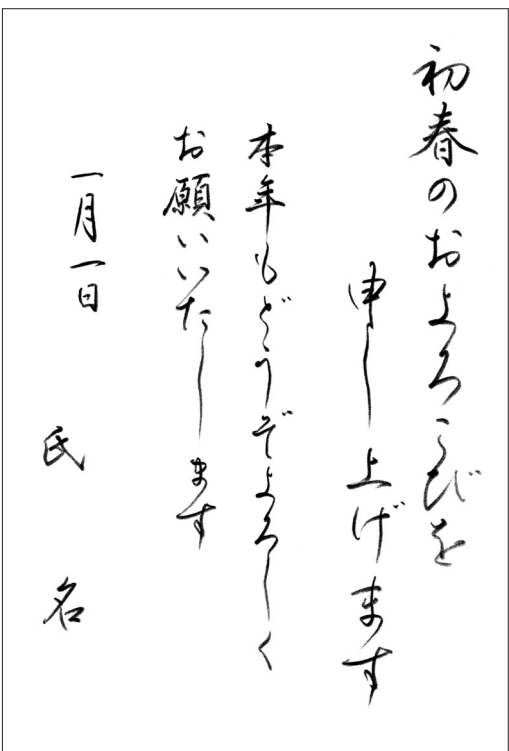 初春のおよろこびを
申し上げます
本年もどうぞよろしく
お願いいたします
一月一日
氏名